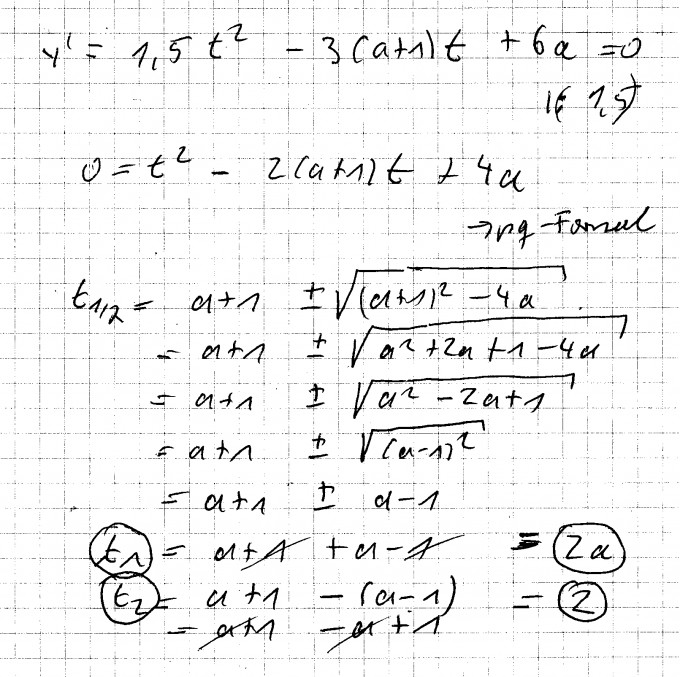 y' = 1,5 t² - 3(a+1)t + 6a = 0
|(: 1,5)
0 = t² - 2(a+1)t + 4a
→ pq-Formel
t₁,₂ = a+1 ± √((a+1)² - 4a)
= a+1 ± √(a² + 2a + 1 - 4a)
= a+1 ± √(a² - 2a + 1)
= a+1 ± √((a-1)²)
= a+1 ± a-1
t₁ = a+1 + a-1 = 2a
t₂ = a+1 - (a-1) = 2
= a+1 - a + 1